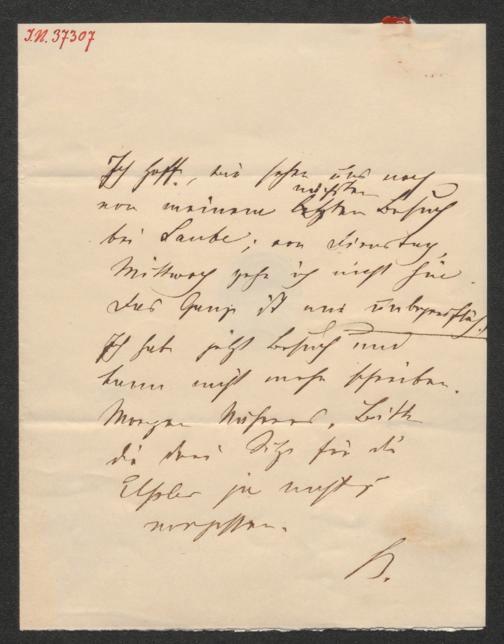 I.N. 37307
Ich hoffe, wir sehen uns noch
vor meinem nächsten Besuch
bei Laube; vor Dienstag,
Mittwoch gehe ich nicht hin.
Das Ganze ist mir unbegreiflich!
Ich habe jetzt Besuch und
kann nicht mehr schreiben.
Morgen Näheres. Bitte
die drei Sitze für die
Elßler ja nicht zu
vergessen.
H.